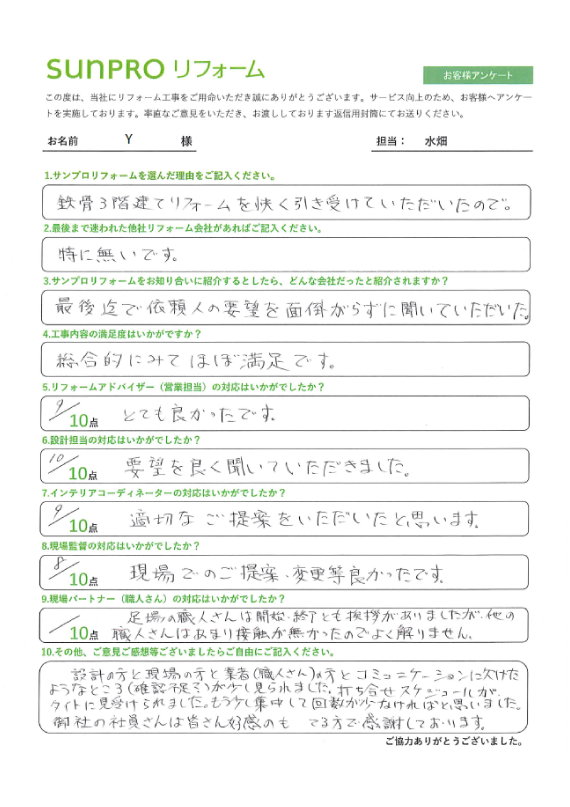 sunPRO リフォーム
お客様アンケート
この度は、当社にリフォーム工事をご用命いただき誠にありがとうございます。サービス向上のため、お客様へアンケー
トを実施しております。率直なご意見をいただき、お渡ししております返信用封筒にてお送りください。
お名前 Y 様 担当： 水畑
1.サンプロリフォームを選んだ理由をご記入ください。
鉄骨3階建てリフォームを快く引き受けていただいたので。
2.最後まで迷われた他社リフォーム会社があればご記入ください。
特に無いです。
3.サンプロリフォームをお知り合いに紹介するとしたら、どんな会社だったと紹介されますか？
最後迄で依頼人の要望を面倒がらずに聞いていただいた。
4.工事内容の満足度はいかがですか？
総合的にみてほぼ満足です。
5.リフォームアドバイザー（営業担当）の対応はいかがでしたか？
9/10点 とても良かったです。
6.設計担当の対応はいかがでしたか？
10/10点 要望を良く聞いていただきました。
7.インテリアコーディネーターの対応はいかがでしたか？
9/10点 適切なご提案をいただいたと思います。
8.現場監督の対応はいかがでしたか？
8/10点 現場でのご提案、変更等良かったです。
9.現場パートナー（職人さん）の対応はいかがでしたか？
足場の職人さんは開始・終了とも挨拶がありましたが、他の
/10点 職人さんはあまり接触が無かったのでよく解りません。
10.その他、ご意見ご感想等ございましたらご自由にご記入ください。
設計の方と現場の方と業者(職人さん)の方とコミュニケーションに欠けた
ようなところ(確認不足?)が少し見られました。打ち合せスケジュールが
タイトに見受けられました。もう少し集中して回数が少なければと思いました。
御社の社員さんは皆さん好感のも てる方で感謝しております。
ご協力ありがとうございました。